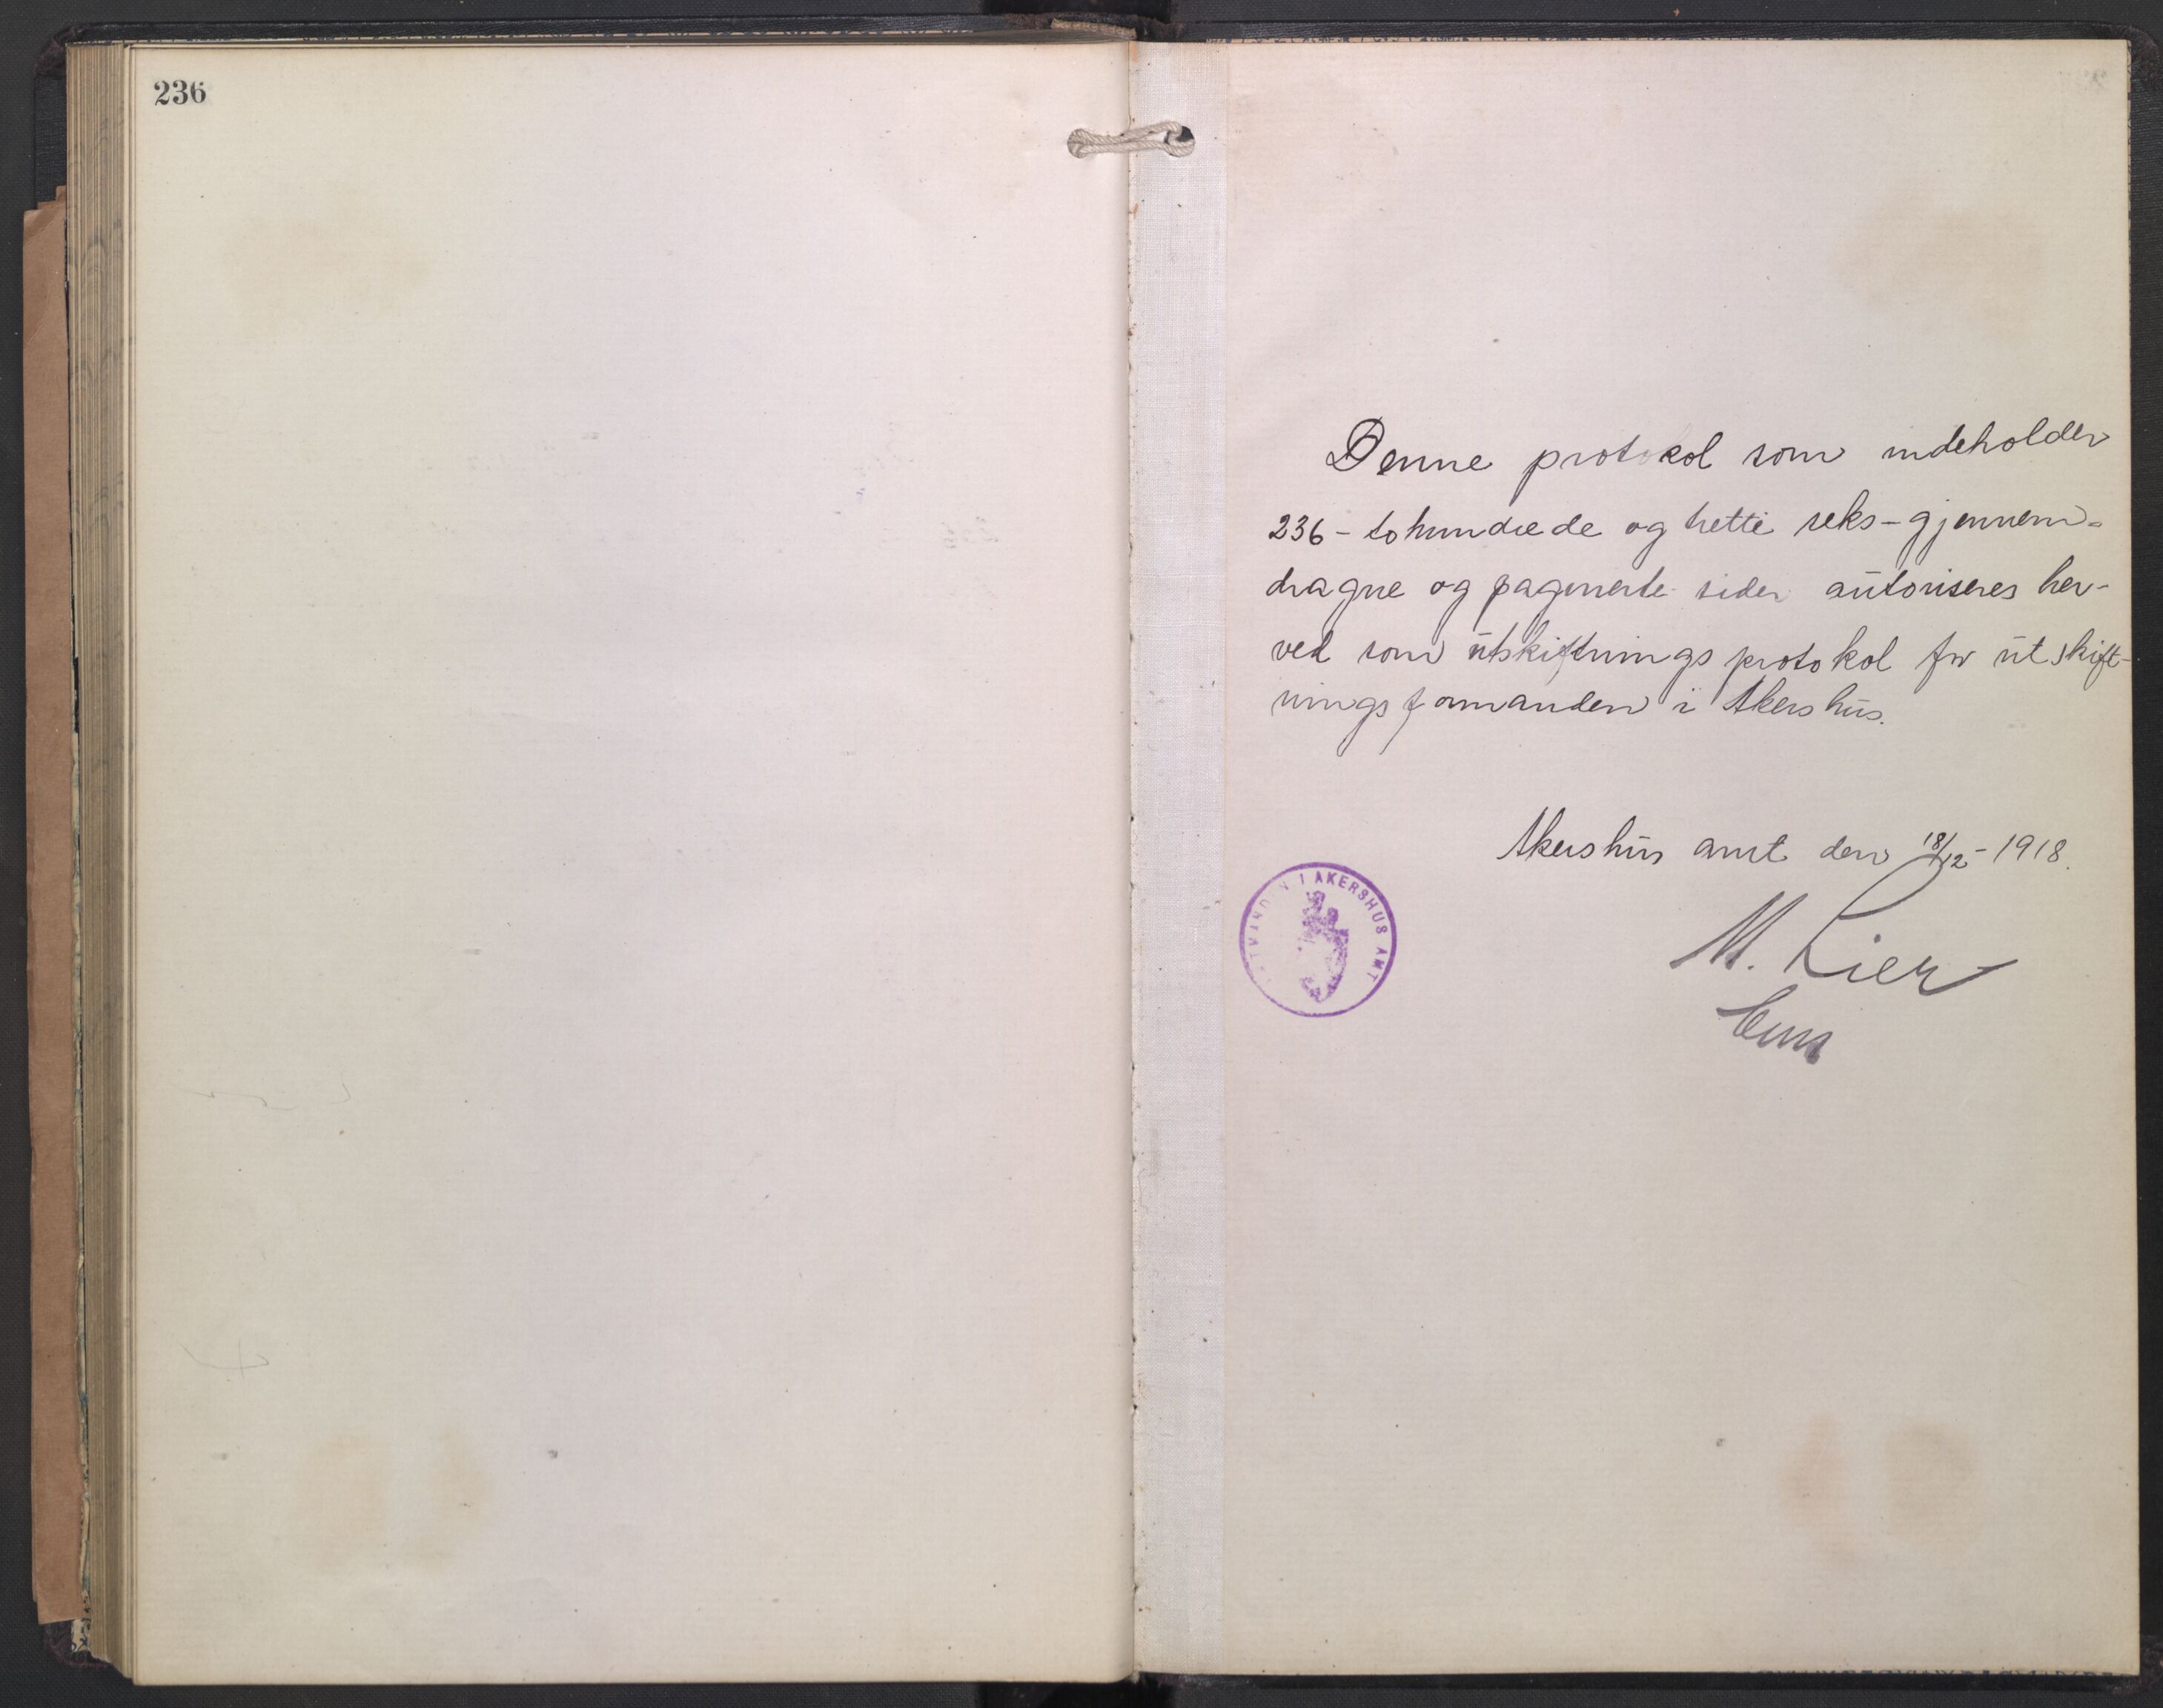 236
Denne protokol som indeholder
236 - tohundrede og tretti seks - gjennem-
dragne og paginerte sider autoriseres her-
ved som utskiftningsprotokol for utskift-
ningsformanden i Akershus.
Akershus amt den 18/12 - 1918.
I AKERSHUS AMT
M. Lier